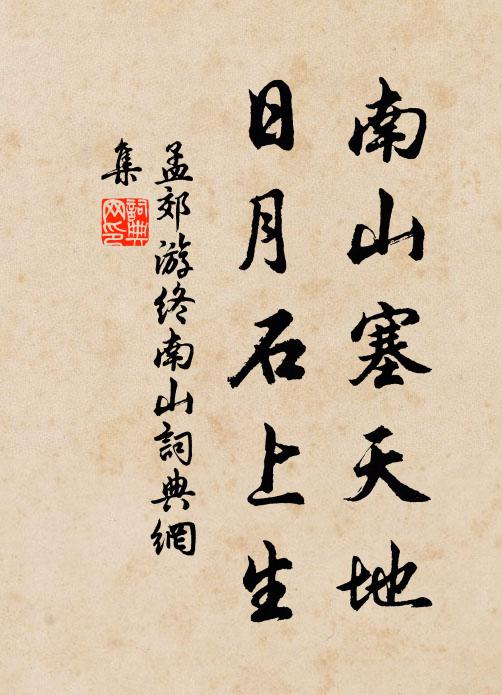 南山塞天地
日月石上生
孟郊游终南山詞典網
集
詞典
网印